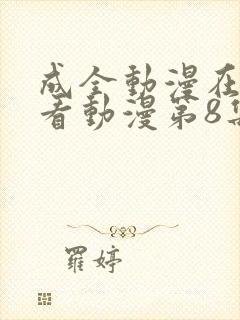 成全動漫在
看動漫第8集
羅婷